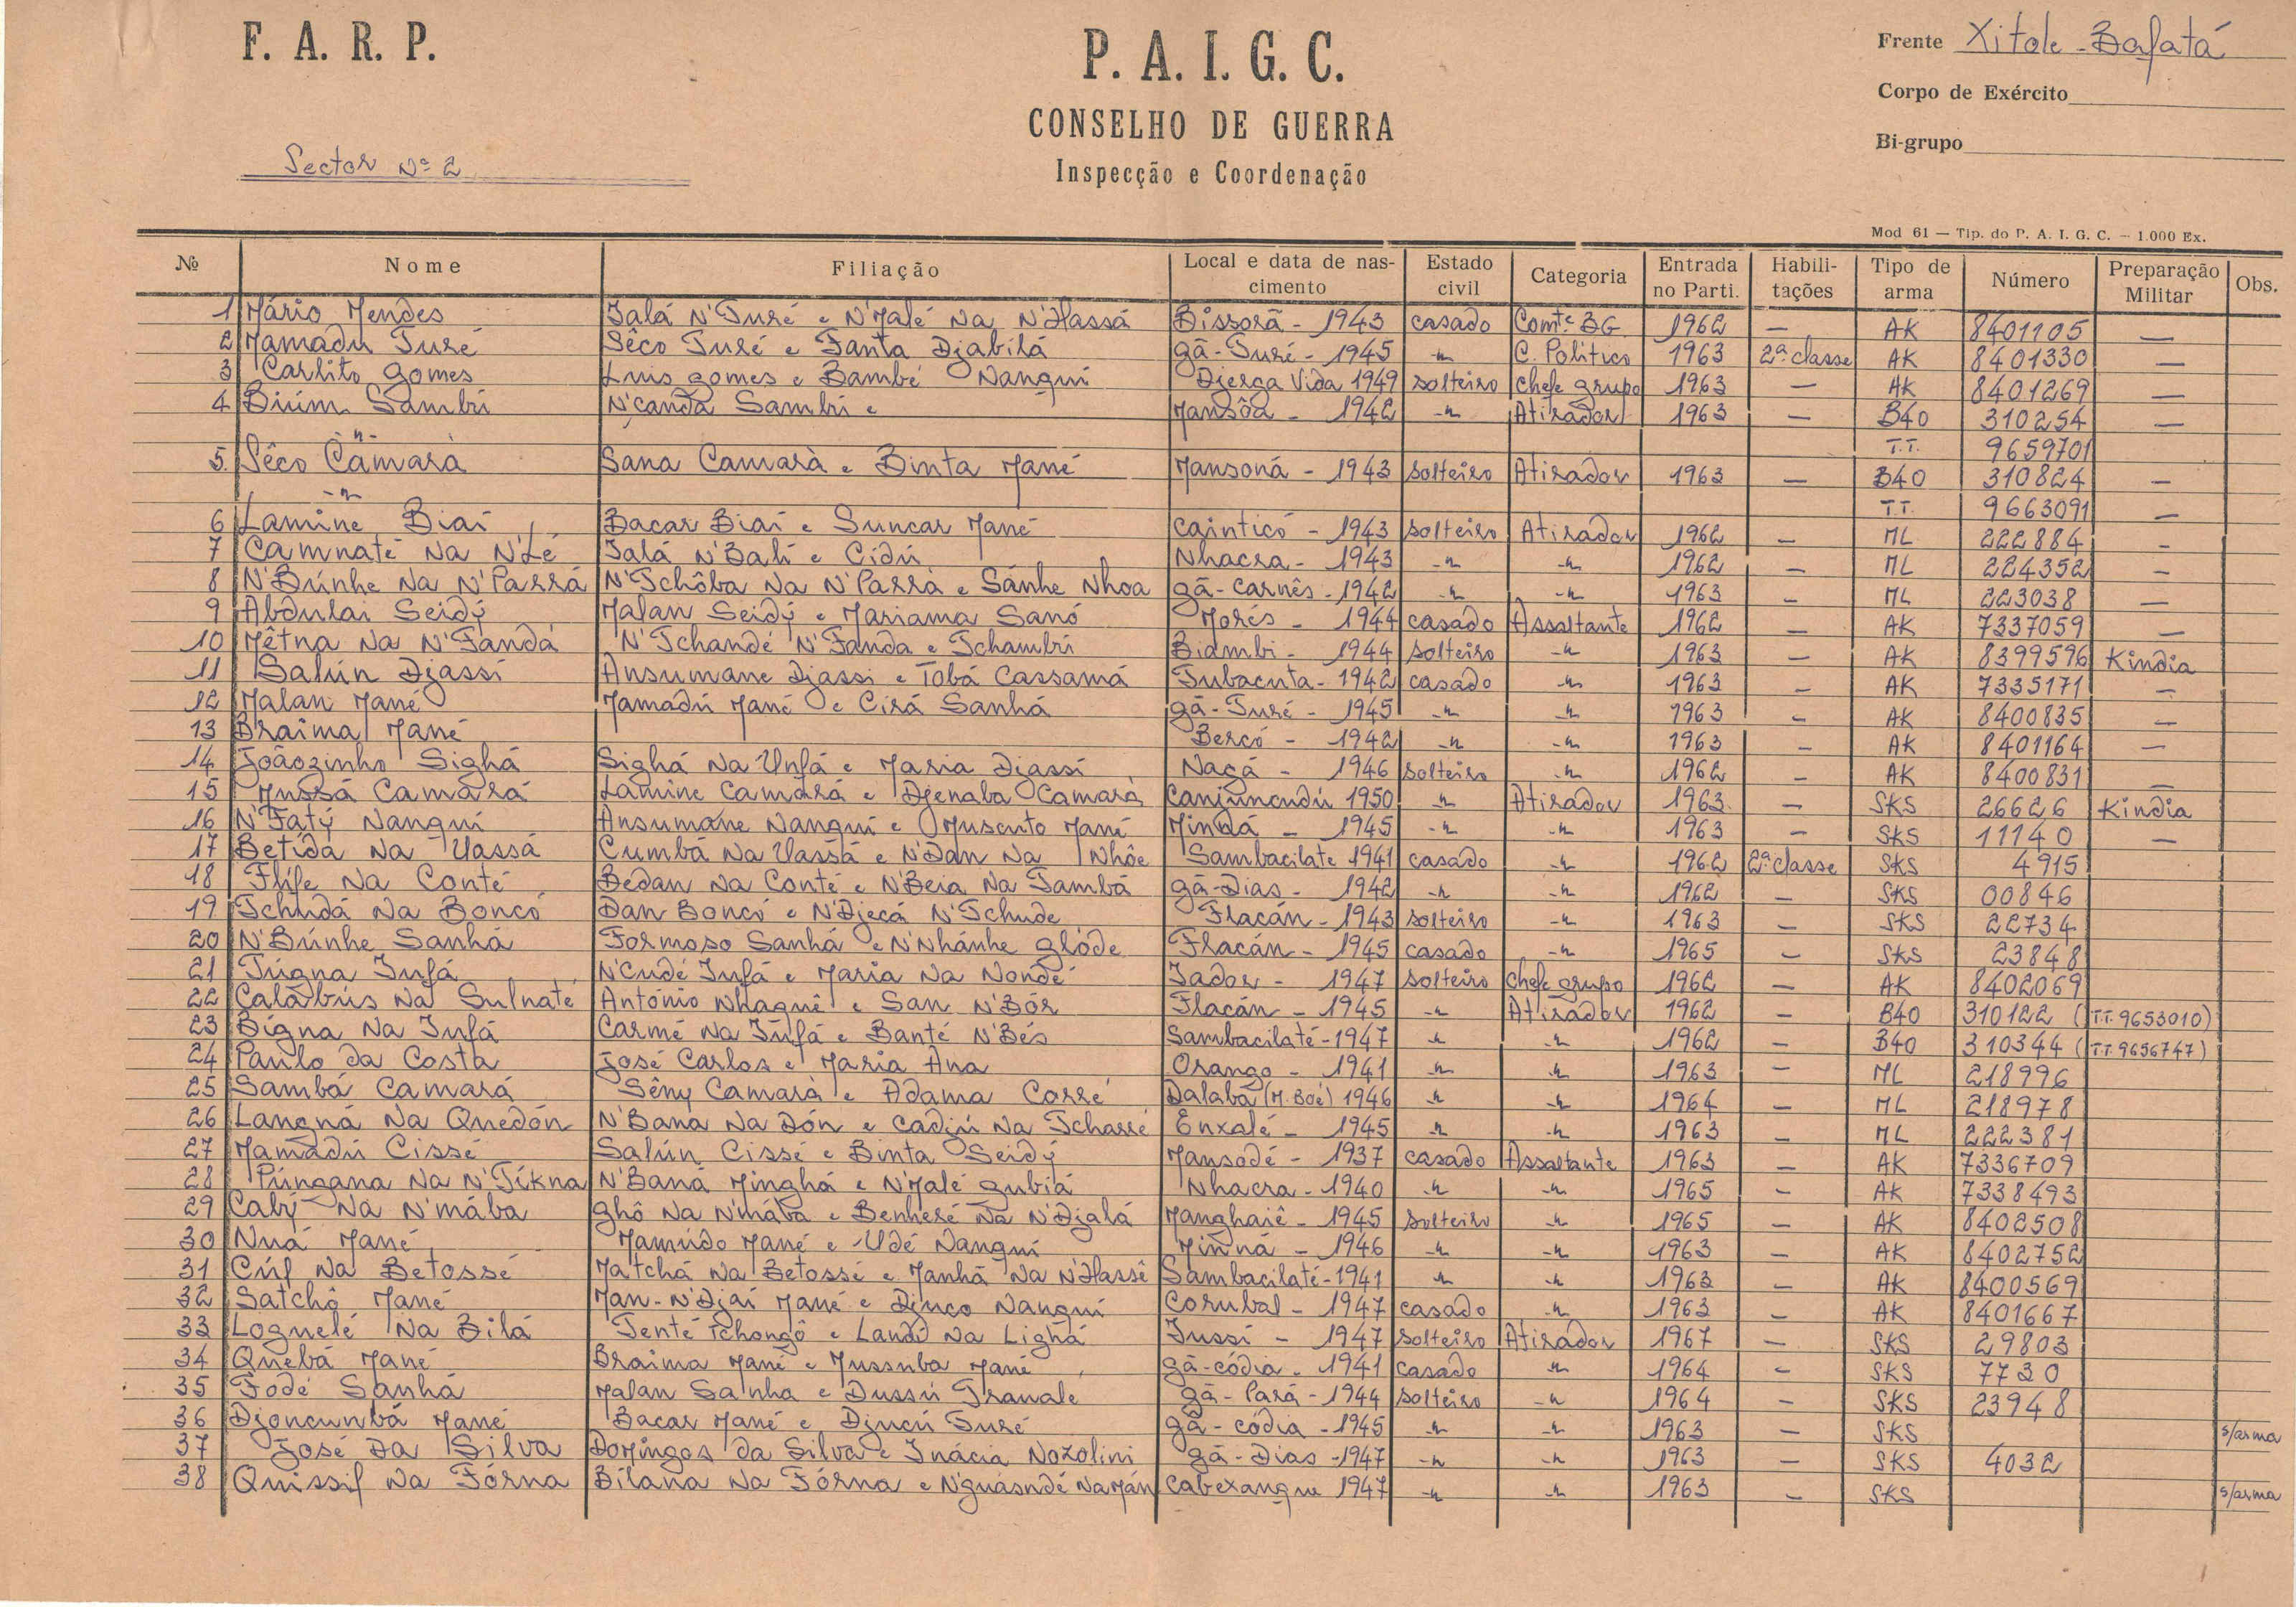 F. A. R. P.
P. A. I. G. C.
CONSELHO DE GUERRA
Inspecção e Coordenação
Frente Xitole - Bafatá
Corpo de Exército
Bi-grupo
Sector Nº 2
Mod 61 — Tip. do P. A. I. G. C. — 1.000 Ex.
Nº Nome Filiação Local e data de nascimento Estado civil Categoria Entrada no Parti. Habilitações Tipo de arma Número Preparação Militar Obs.
1 Mário Mendes Jalá N'Turé e N'Malé Na N'Hassá Bissorã - 1943 casado Comte BG 1962 — AK 8401105 —
2 Mamadu Turé Sêco Turé e Fanta Djabilá gã-Turé - 1945 -"- C. Político 1963 2ª classe AK 8401330 —
3 Carlito Gomes Luis gomes e Bambé Nanqui Djerça Vida 1949 solteiro chefe grupo 1963 — AK 8401269 —
4 Biúm Sambú N'canda Sambú e Mansôa - 1942 -"- Atirador 1963 — B40 310254 —
-"- T.T. 9659701
5 Sêco Camará Sana Camarà e Binta Mané Mansoná - 1943 solteiro Atirador 1963 — B40 310824 —
-"- T.T. 9663091 —
6 Lamine Biai Bacar Biai e Suncar Mané Cainticó - 1943 solteiro Atirador 1962 — ML 222884 —
7 Camnaté Na N'Lé Jalá N'Bali e Cidú Nhacra - 1943 -"- -"- 1962 — ML 224352 —
8 N'Búnhe Na N'Parrá N'Tchôba Na N'Parrà e Sánhe Nhoa gã-Carnês - 1942 -"- -"- 1963 — ML 223038 —
9 Abdulai Seidy Malan Seidy e Mariama Sanó Morés - 1944 casado Assaltante 1962 — AK 7337059 —
10 Mêtna Na N'Fandá N'Tchandé N'Fanda e Tchambú Biambi - 1944 solteiro -"- 1963 — AK 8399596 Kindia
11 Salún Djassi Ansumane Djassi e Tobá Cassamá Tubacuta - 1942 casado -"- 1963 — AK 7335171 —
12 Malan Mané Mamadú Mané e Cirá Sanhá gã-Turé - 1945 -"- -"- 1963 — AK 8400835 —
13 Braima Mané Bercó - 1942 -"- -"- 1963 — AK 8401164 —
14 Joãozinho Sighá Sighá Na Unfá e Maria Djassi Nagá - 1946 solteiro -"- 1962 — AK 8400831 —
15 Mussá Camará Lamine Camará e Djenaba Camará Canjuncudú 1950 -"- Atirador 1963 — SKS 26626 Kindia
16 N'Faty Nanqui Ansumane Nanqui e Muscuto Mané Mindá - 1945 -"- -"- 1963 — SKS 11140 —
17 Betidá Na Uassá Cumbá Na Uassá e N'Dan Na Nhôe Sambacilate 1941 casado -"- 1962 2ª classe SKS 4915
18 Flife Na Conté Bedan Na Conté e N'Beia Na Tambá gã-Dias - 1942 -"- -"- 1962 — SKS 00846
19 Tchudá Na Boncó Dan Boncó e N'Djecá N'Tchude Flacán - 1943 solteiro -"- 1963 — SKS 22734
20 N'Búnhe Sanhá Formoso Sanhá e N'Nhánhe glóde Flacán - 1945 casado -"- 1965 — SKS 23848
21 Túgna Iufá N'Cudé Iufá e Maria Na Nondé Jador - 1947 solteiro Chefe grupo 1962 — AK 8402069
22 Calabús Na Sulnaté António Nhaquê e San N'Bór Flacán - 1945 -"- Atirador 1962 — B40 310122 (T.T. 9653010)
23 Bigna Na Iufá Carmé Na Iufá e Banté N'Bés Sambacilaté - 1947 -"- -"- 1962 — B40 310344 (T.T. 9656747)
24 Paulo da Costa José Carlos e Maria Ana Orango - 1941 -"- -"- 1963 — ML 218996
25 Sambá Camará Sêny Camarà e Adama Corré Dalabá (M. Boé) 1946 -"- -"- 1964 — ML 218978
26 Langná Na Quedón N'Bana Na Dón e Cadjú Na Tcharré Enxalé - 1945 -"- -"- 1963 — ML 222381
27 Mamadú Cissé Salún Cissé e Binta Seidy Mansodé - 1937 casado Assaltante 1963 — AK 7336709
28 Púngana Na N'Tíkna N'Baná Minghá e N'Malé gubiá Nhacra - 1940 -"- -"- 1965 — AK 7338493
29 Caby Na N'mába ghô Na N'mába e Benheré Na N'Djalá Manghaiê - 1945 solteiro -"- 1965 — AK 8402508
30 Nuá Mané Mamúdo Mané e Udé Nanqui Minná - 1946 -"- -"- 1963 — AK 8402752
31 Cúf Na Betossé Matchá Na Betossé e Manhã Na N'Hassê Sambacilaté - 1941 -"- -"- 1963 — AK 8400569
32 Satchô Mané Man-N'Djai Mané e Djuco Nanqui Corubal - 1947 casado -"- 1963 — AK 8401667
33 Loguelé Na Bilá Tenté Tchongô e Landú Na Lighá Iussi - 1947 solteiro Atirador 1967 — SKS 29803
34 Quebá Mané Braima Mané e Mussuba Mané gã-códia - 1941 casado -"- 1964 — SKS 7730
35 Fodé Sanhá Malan Sanha e Dussú Tranale gã-Pará - 1944 solteiro -"- 1964 — SKS 23948
36 Djoncunbá Mané Bacar Mané e Djucú Turé gã-códia - 1945 -"- -"- 1963 — SKS s/arma
37 José Da Silva Domingos da Silva e Inácia Nozolini gã-Dias - 1947 -"- -"- 1963 — SKS 4032
38 Quissif Na Fórna Bilana Na Fórna e N'guásndé Na Mán Cabexanque 1947 -"- -"- 1963 — SKS s/arma